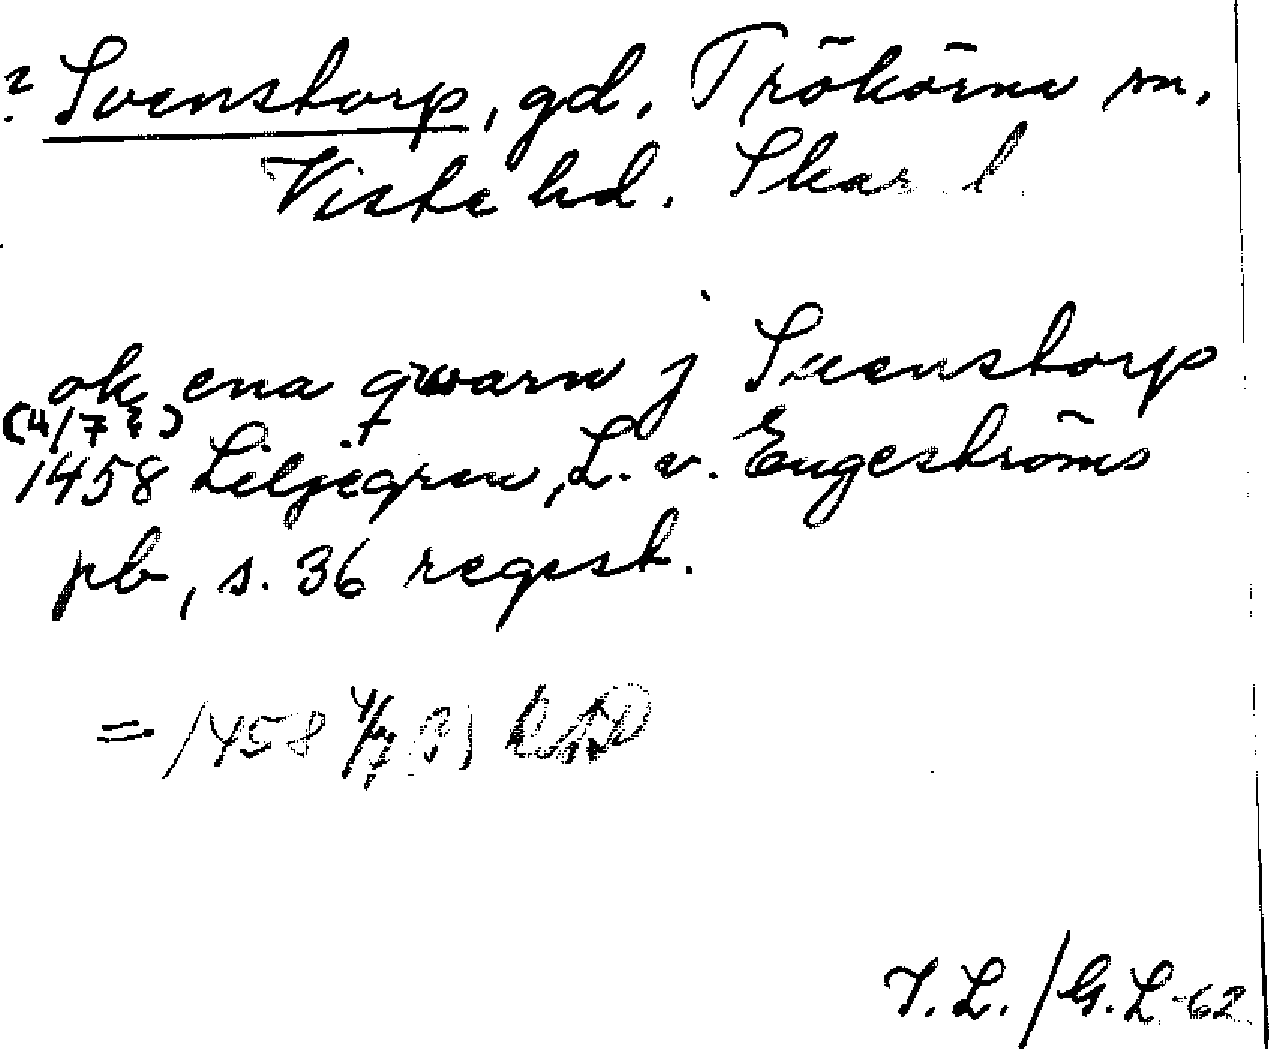 ? Svenstorp, gd, Trökörna sn,
Viste hd. Skar l
ok ena qwarn j Suenstorp
(4/7 ?)
1458 Liljegren, L. v. Engeströms
pb, s. 36 regest.
= 1458 4/7 RAP
T.L./G.L-62